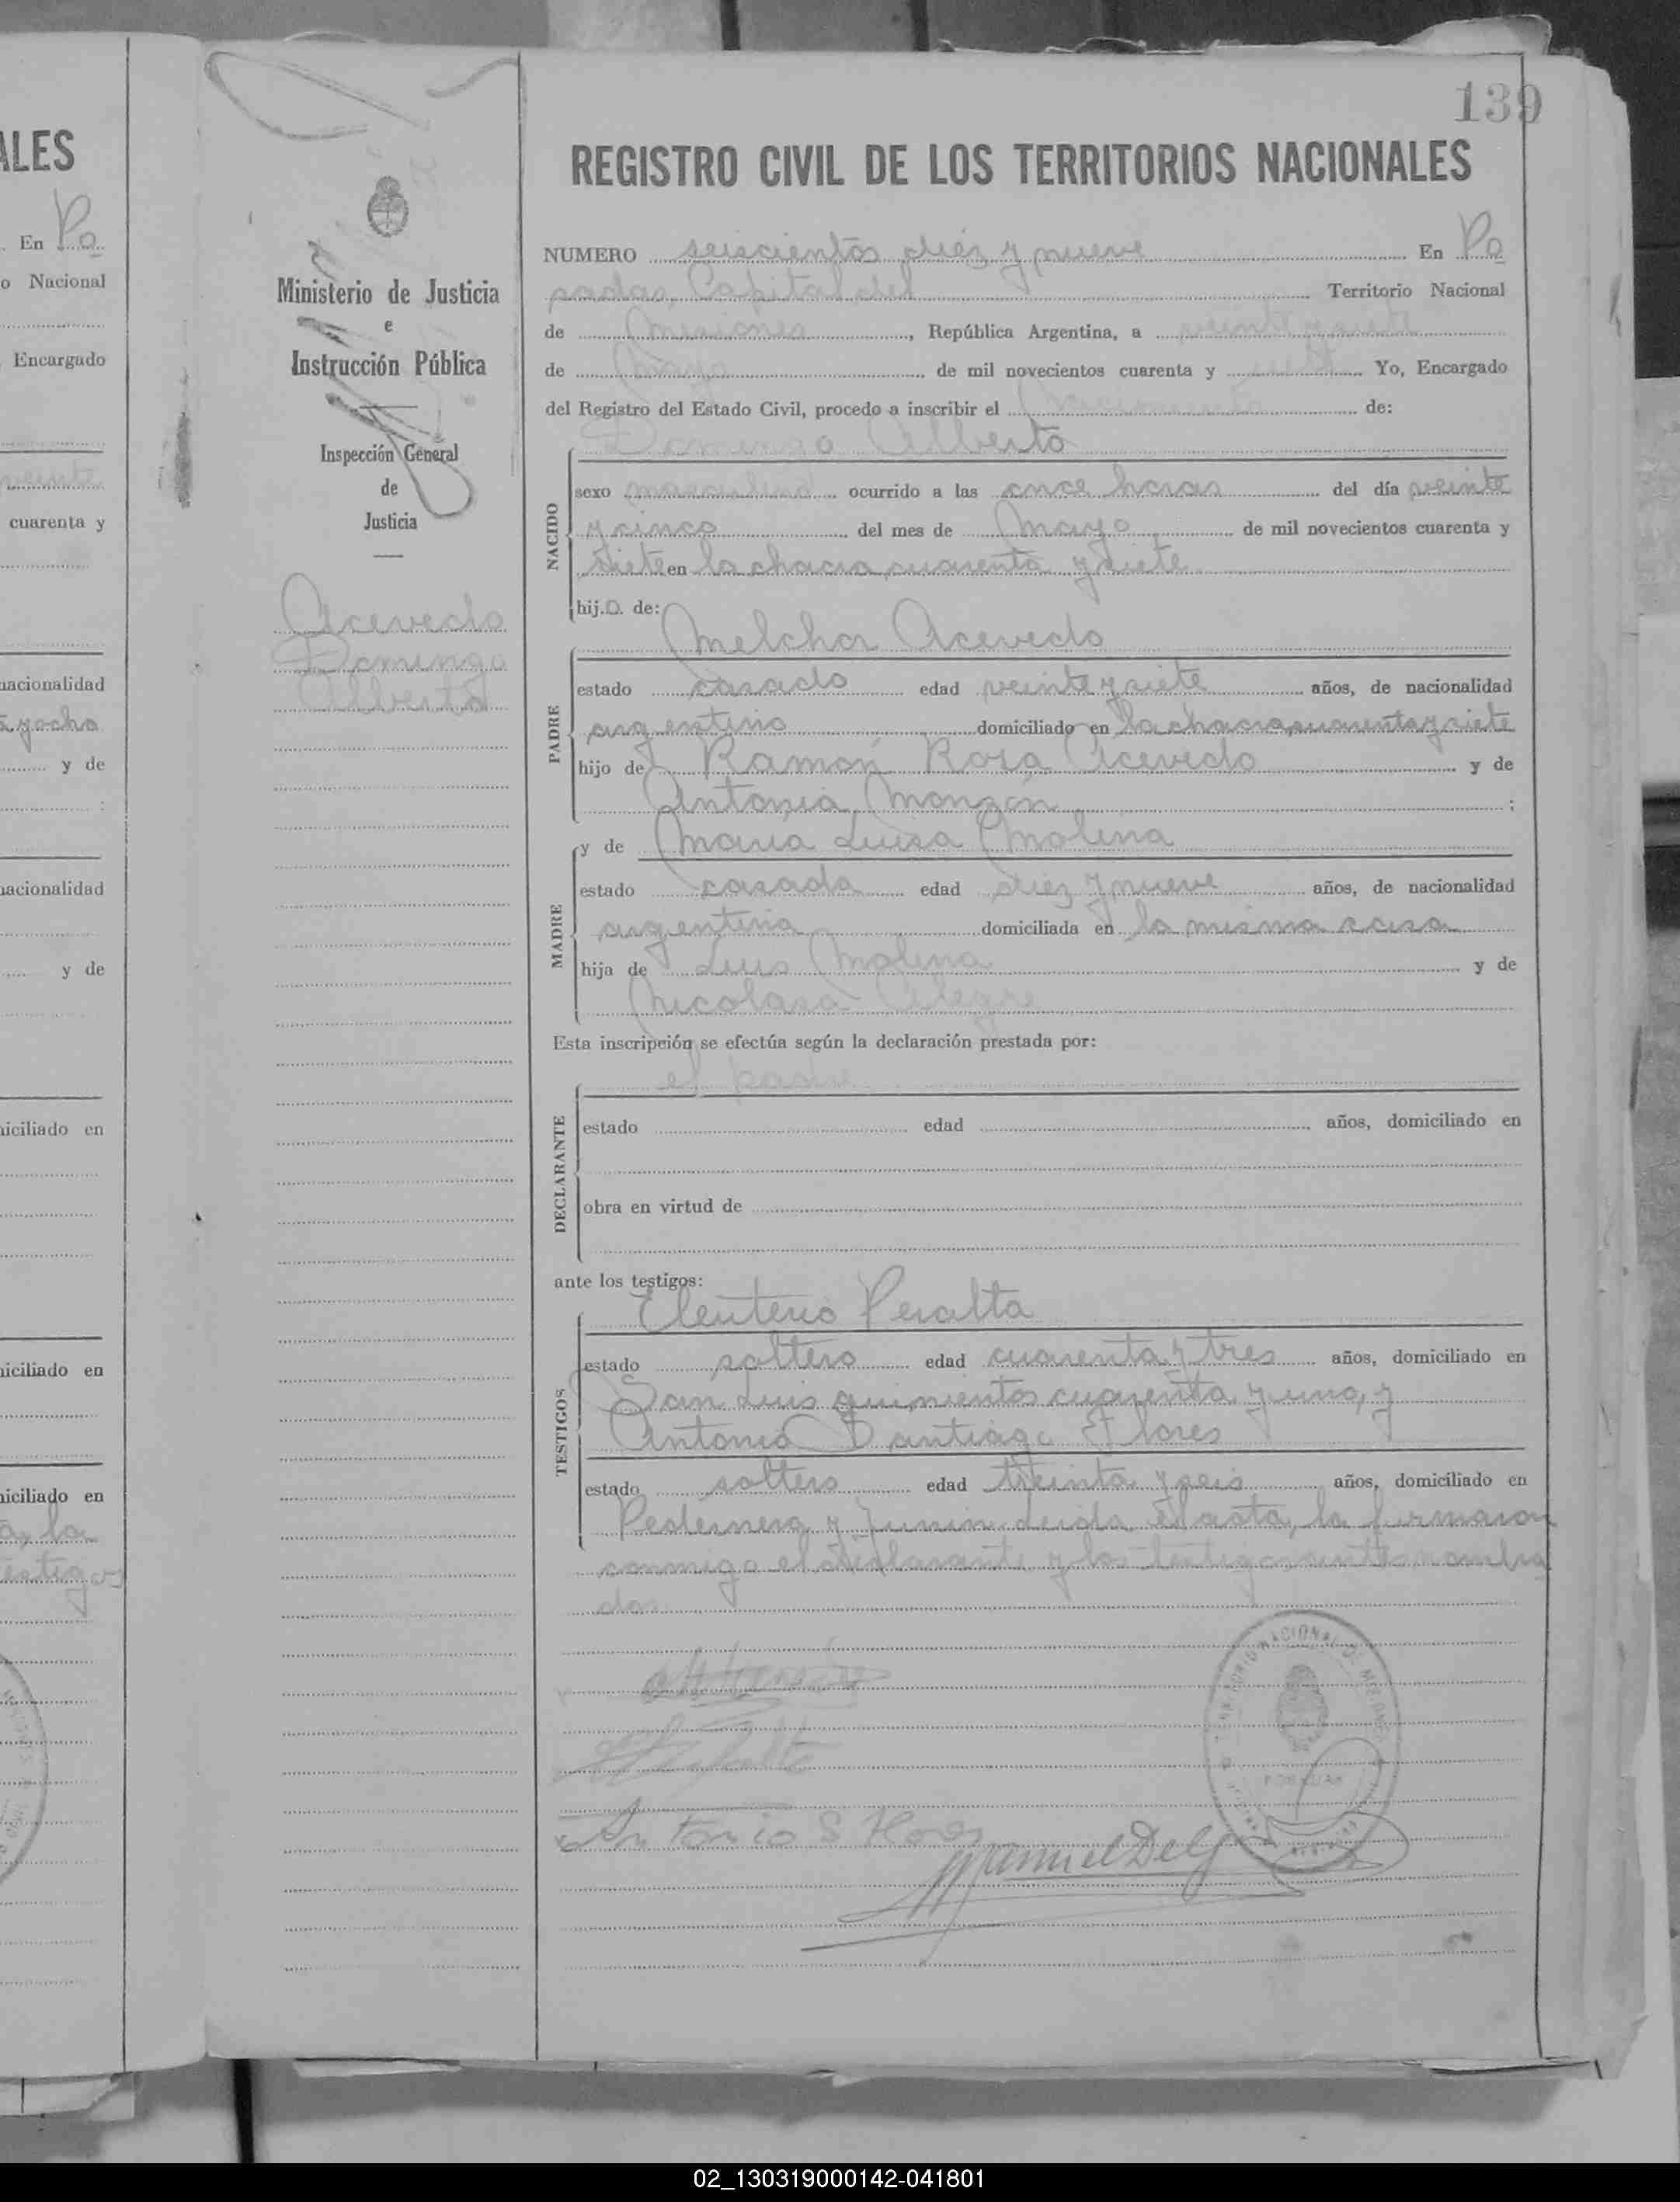 139
ALES
REGISTRO CIVIL DE LOS TERRITORIOS NACIONALES
En Po
o Nacional
Encargado
veinte
cuarenta y
nacionalidad
y ocho
y de
:
nacionalidad
y de
iciliado en
iciliado en
iciliado en
a, la
testigos
Ministerio de Justicia
e
Instrucción Pública
Inspección General
de
Justicia
Acevedo
Domingo
Alberto
NUMERO seiscientos diez y nueve En Po
sadas, Capital del Territorio Nacional
de Misiones, República Argentina, a veintisiete
de Mayo de mil novecientos cuarenta y siete Yo, Encargado
del Registro del Estado Civil, procedo a inscribir el Nacimiento de:
Domingo Alberto
NACIDO
sexo masculino ocurrido a las once horas del día veinte
y cinco del mes de Mayo de mil novecientos cuarenta y
siete en la chacra cuarenta y siete
hij.o. de:
Melchor Acevedo
PADRE
estado casado edad veinte y siete años, de nacionalidad
argentino domiciliado en la chacra cuarenta y siete
hijo de Ramón Rosa Acevedo y de
Antonia Monzón ;
y de María Luisa Molina
MADRE
estado casada edad diez y nueve años, de nacionalidad
argentina domiciliada en la misma casa
hija de Luis Molina y de
Nicolasa Alegre
Esta inscripción se efectúa según la declaración prestada por:
el padre
DECLARANTE
estado edad años, domiciliado en
obra en virtud de
ante los testigos:
Eleuterio Peralta
TESTIGOS
estado soltero edad cuarenta y tres años, domiciliado en
San Luis quinientos cuarenta y uno, y
Antonio Santiago Flores
estado soltero edad treinta y seis años, domiciliado en
Pedernera y Junin. Leida el acta, la firmaron
conmigo el declarante y los testigos antes nombra
dos
TERRITORIO NACIONAL DE MISIONES
POSADAS
Antonio S Flores
Manuel Del
02_130319000142-041801